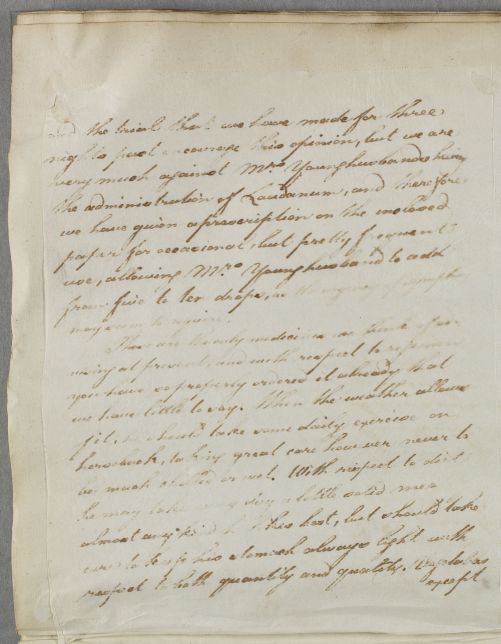 and the trials that we have made for three
nights past encourage this opinion, but we are
very much against Mrs. Younghusband's having
the administration of Laudanum, and therefore
we have given a prescription on the inclosed
paper for occasional but pretty frequent
use, allowing Mrs. Younghusband to add
from five to ten drops, as the urgency of symptoms
may seem to require.
These are the only medicines we think of
at present, and with respect to regimen
you have so properly ordered it already that
we have little to say. When the weather allows
he should take some daily exercise on
horseback, taking great care however never to
be much or wet. With respect to diet
he may take every day a little solid meat
almost any kind he likes best, but should take
care to keep his stomach always light with
respect to both quantity and quality. Vegetables
except